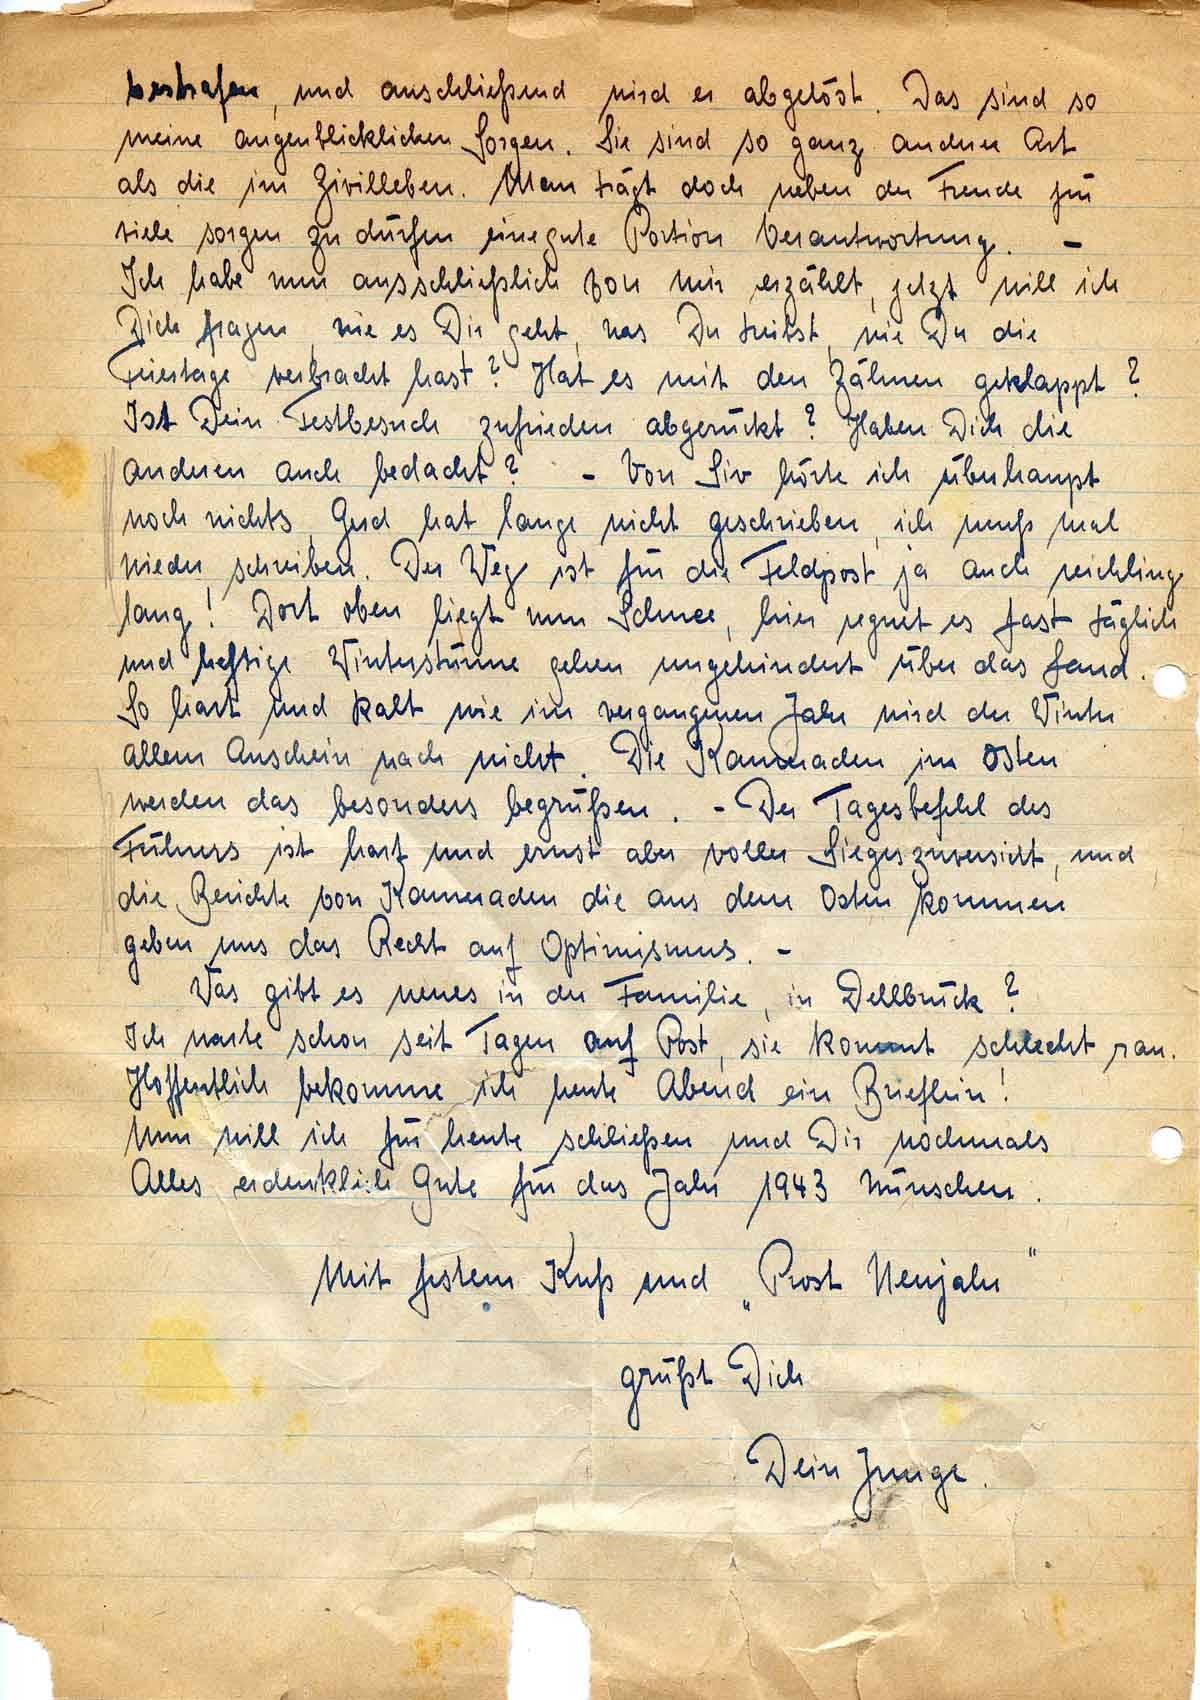 bestrafen, und anschließend wird er abgelöst. Das sind so
meine augenblicklichen Sorgen. Sie sind so ganz andrer Art
als die im Zivilleben. Man trägt doch neben der Freude für
viele sorgen zu dürfen eine gute Portion Verantwortung. –
Ich habe nun ausschließlich von mir erzählt, jetzt will ich
Dich fragen, wie es Dir geht, was Du treibst, wie Du die
Feiertage verbracht hast? Hat es mit den Zähnen geklappt?
Ist Dein Festbesuch zufrieden abgerückt? Haben Dich die
anderen auch bedacht? – Von Siv hörte ich überhaupt
noch nichts, Gerd hat lange nicht geschrieben, ich muß mal
wieder schreiben. Der Weg ist für die Feldpost ja auch reichling
lang! Dort oben liegt nun Schnee, hier regnet es fast täglich
und heftige Winterstürme gehen ungehindert über das Land.
So hart und kalt wie im vergangenen Jahr wird der Winter
allem Anschein nach nicht. Die Kameraden im Osten
werden das besonders begrüßen. – Der Tagesbefehl des
Führers ist hart und ernst aber voller Siegeszuversicht, und
die Berichte von Kameraden die aus dem Osten kommen
geben uns das Recht auf Optimismus. –
Was gibt es neues in der Familie, in Dellbrück?
Ich warte schon seit Tagen auf Post, sie kommt schlecht ran.
Hoffentlich bekomme ich heute Abend ein Brieflein!
Nun will ich für heute schließen und Dir nochmals
Alles erdenklich Gute für das Jahr 1943 wünschen.
Mit festem Kuß und „Prost Neujahr"
grüßt Dich
Dein Junge.